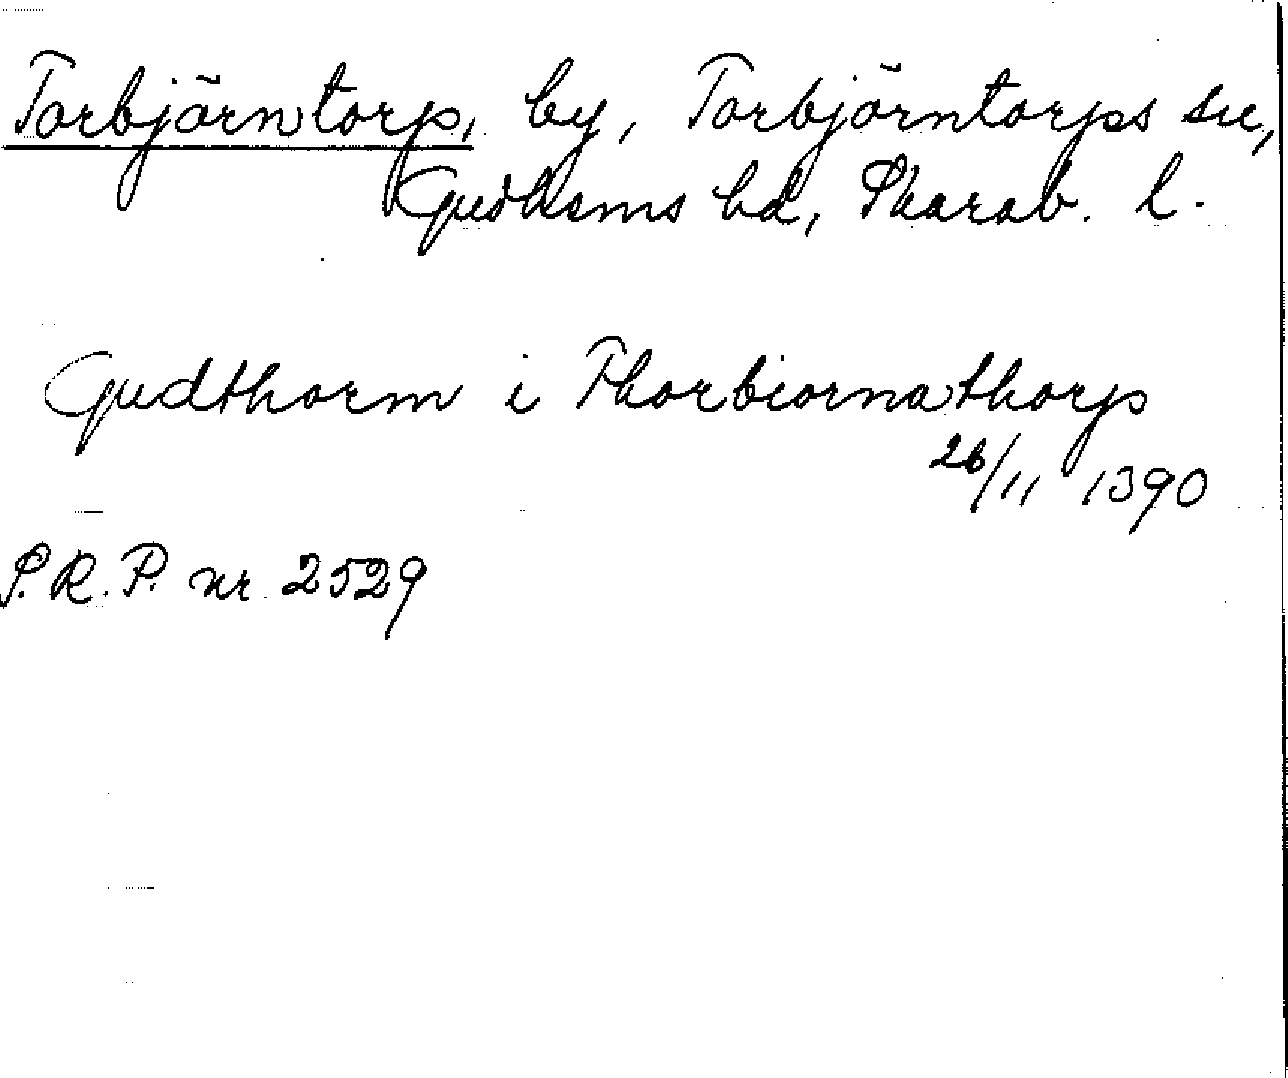 Torbjörntorp, by, Torbjörntorps sn,
Gudhems hd, Skarab. l.
Gudthorm i Thorbiornathorp
26/11 1390
S.R.P. nr 2529